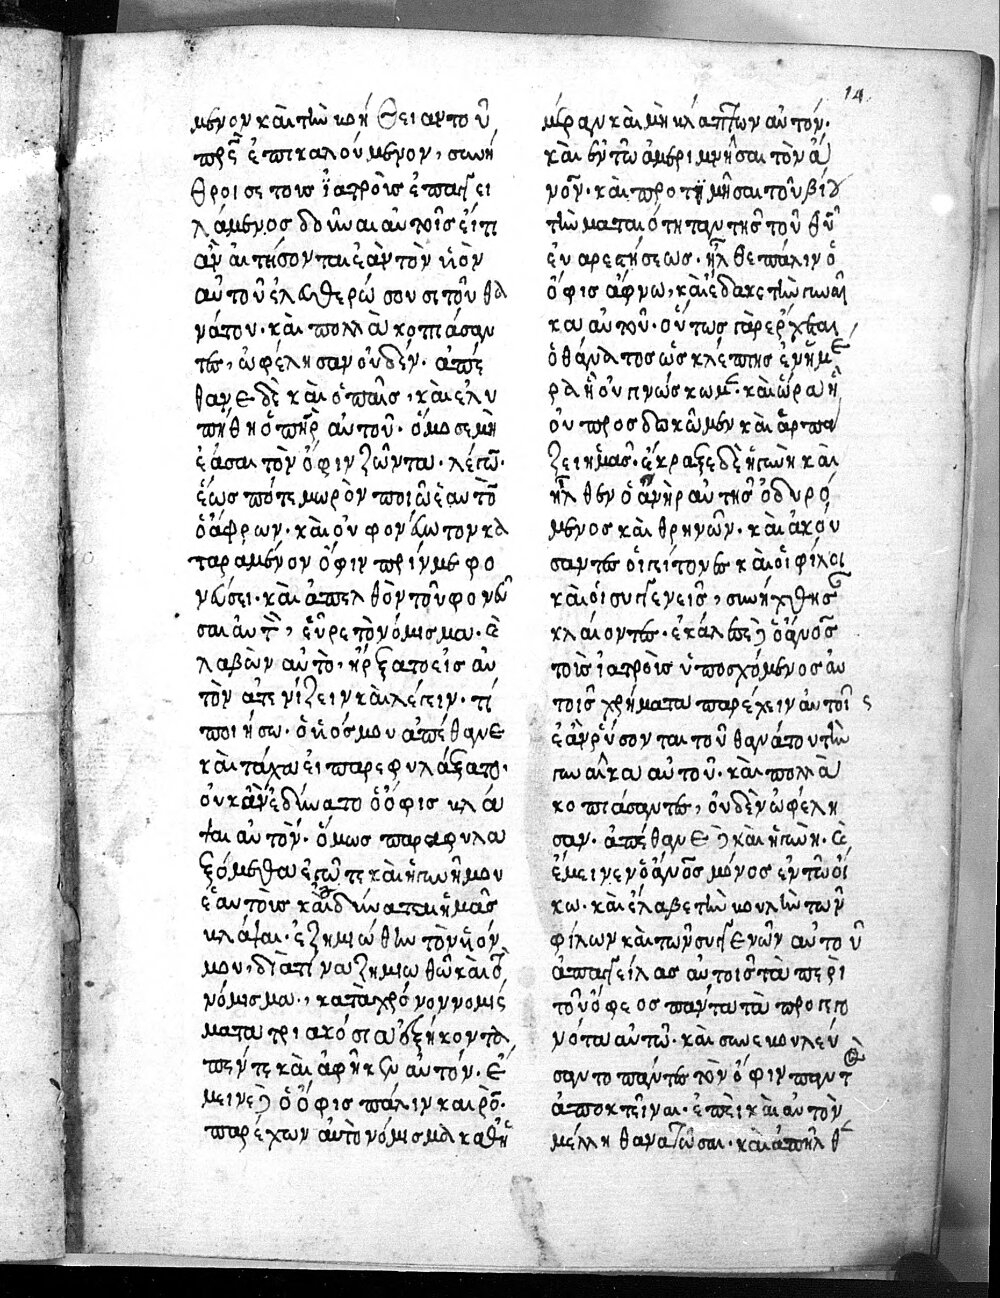 14
μενον καὶ τὴν βοήθειαν τοῦ
πρς̅ ἐπικαλούμενον, συνή
θροισε τοὺς ἰατροὺς ἐπαγγει
λάμενος δοῦναι αὐτοῖς εἴ τι
ἂν αἰτήσονται ἐὰν τὸν υἱὸν
αὐτοῦ ἐλευθερώσουσι τοῦ θα
νάτου. καὶ πολλὰ κοπιάσαν
τες, ὠφέλησαν οὐδέν. ἀπέ
θανε δὲ καὶ ὁ παῖς, καὶ ἐλυ
πήθη ὁ πηρ̅ αὐτοῦ. ὅμοσε μὴ
ἐάσαι τὸν ὄφιν ζῶντα. λέγω.
ἕως πότε μωρὸν ποιῶ ἑαυτὸ
ὁ ἄφρων. καὶ οὐ φονεύω τὸν κα
ταραμένον ὄφιν πρίν με φο
νεύσει. καὶ ἀπελθὸν τοῦ φονεῦ
σαι αὐτ, εὗρε τὸ νόμισμα. καὶ
λαβὼν αὐτὸ, ἤρξατο εἰς αὐ
τὸν ἀτενίζειν καὶ λέγειν. τί
ποιήσω. ὁ υἱός μου ἀπέθανε
καὶ τάχα εἰ παρεφυλάξατο.
οὐκ ἂν ἐδύνατο ὁ ὄφις βλά
ψαι αὐτόν. ὅμως παραφυλα
ξόμεθα ἐγώ τε καὶ ἡ γυνή μου
ἑαυτοὺς καὶ οὐ δύναται ἡμᾶς
βλάψαι. ἐζημιώθην τὸν υἱόν
μου, διατί να ζημιωθῶ καὶ τὸ
νόμισμα, κατὰ χρόνον νομίσ
ματα τριακόσια ἑξήκοντα
πέντε καὶ ἀφῆκεν αὐτόν. ἔ
μεινε δὲ ὁ ὄφις πάλιν καιρὸ.
παρέχων αὐτὸ νόμισμα καθη
μέραν καὶ μὴ βλάπτων αὐτόν.
καὶ ἐν τῶ ἀμεριμνῆσαι τὸν ἄ
νον̅. καὶ προτιμῆσαι τοῦ βίου
τὴν ματαιότητα τῆς τοῦ θυ̅
εὐαρεστήσεως. ἦλθε πάλιν ὁ
ὄφις ἄφνω, καὶ ἔδακε τὴν γυναῖ
κα αὐτοῦ. οὕτως παρέρχεται
ὁ θάνατος ὡς κλέπτης ἐν ἡμέ
ρα ἧ οὐ γινώσκωμεν. καὶ ὥρα ἧ
οὐ προσδοκῶμεν καὶ ἁρπά
ζει ἡμᾶς. ἔκραξε δὲ ἡ γυνὴ καὶ
ἦλθεν ὁ ἀνὴρ αὐτῆς ὀδυρό
μενος καὶ θρηνῶν. καὶ ἀκού
σαντες οἱ γείτονες καὶ οἱ φίλοι
καὶ οἱ συγγενεῖς, συνήχθησαν
κλαίοντες. ἐκάλεσε δὲ ὁ ανος̅
τοὺς ἰατροὺς ὑποσχόμενος αὐ
τοῖς χρήματα παρέχειν αὐτοῖς
ἐὰν ῥύσονται τοῦ θανάτου τὴν
γυναῖκα αὐτοῦ. καὶ πολλὰ
κοπιάσαντες, οὐδὲν ὠφέλη
σαν. ἀπέθανε δὲ καὶ ἡ γυνὴ. καὶ
ἔμεινεν ὁ ανος̅ μόνος ἐν τῶ οἴ
κω. καὶ ἔλαβε τὴν βουλὴν τῶν
φίλων καὶ τῶν συγγενῶν αὐτοῦ
ἀπαγγείλας αὐτοῖς τὰ περὶ
τοῦ ὄφεος πάντα τὰ προγεγο
νότα αὐτῶ. καὶ συνεβουλεύ
σαντο πάντες τὸν ὄφιν παντ
ἀποκτεῖναι. ἐπεὶ καὶ αὐτὸν
μέλλη θανατῶσαι. καὶ ἀπῆλθε